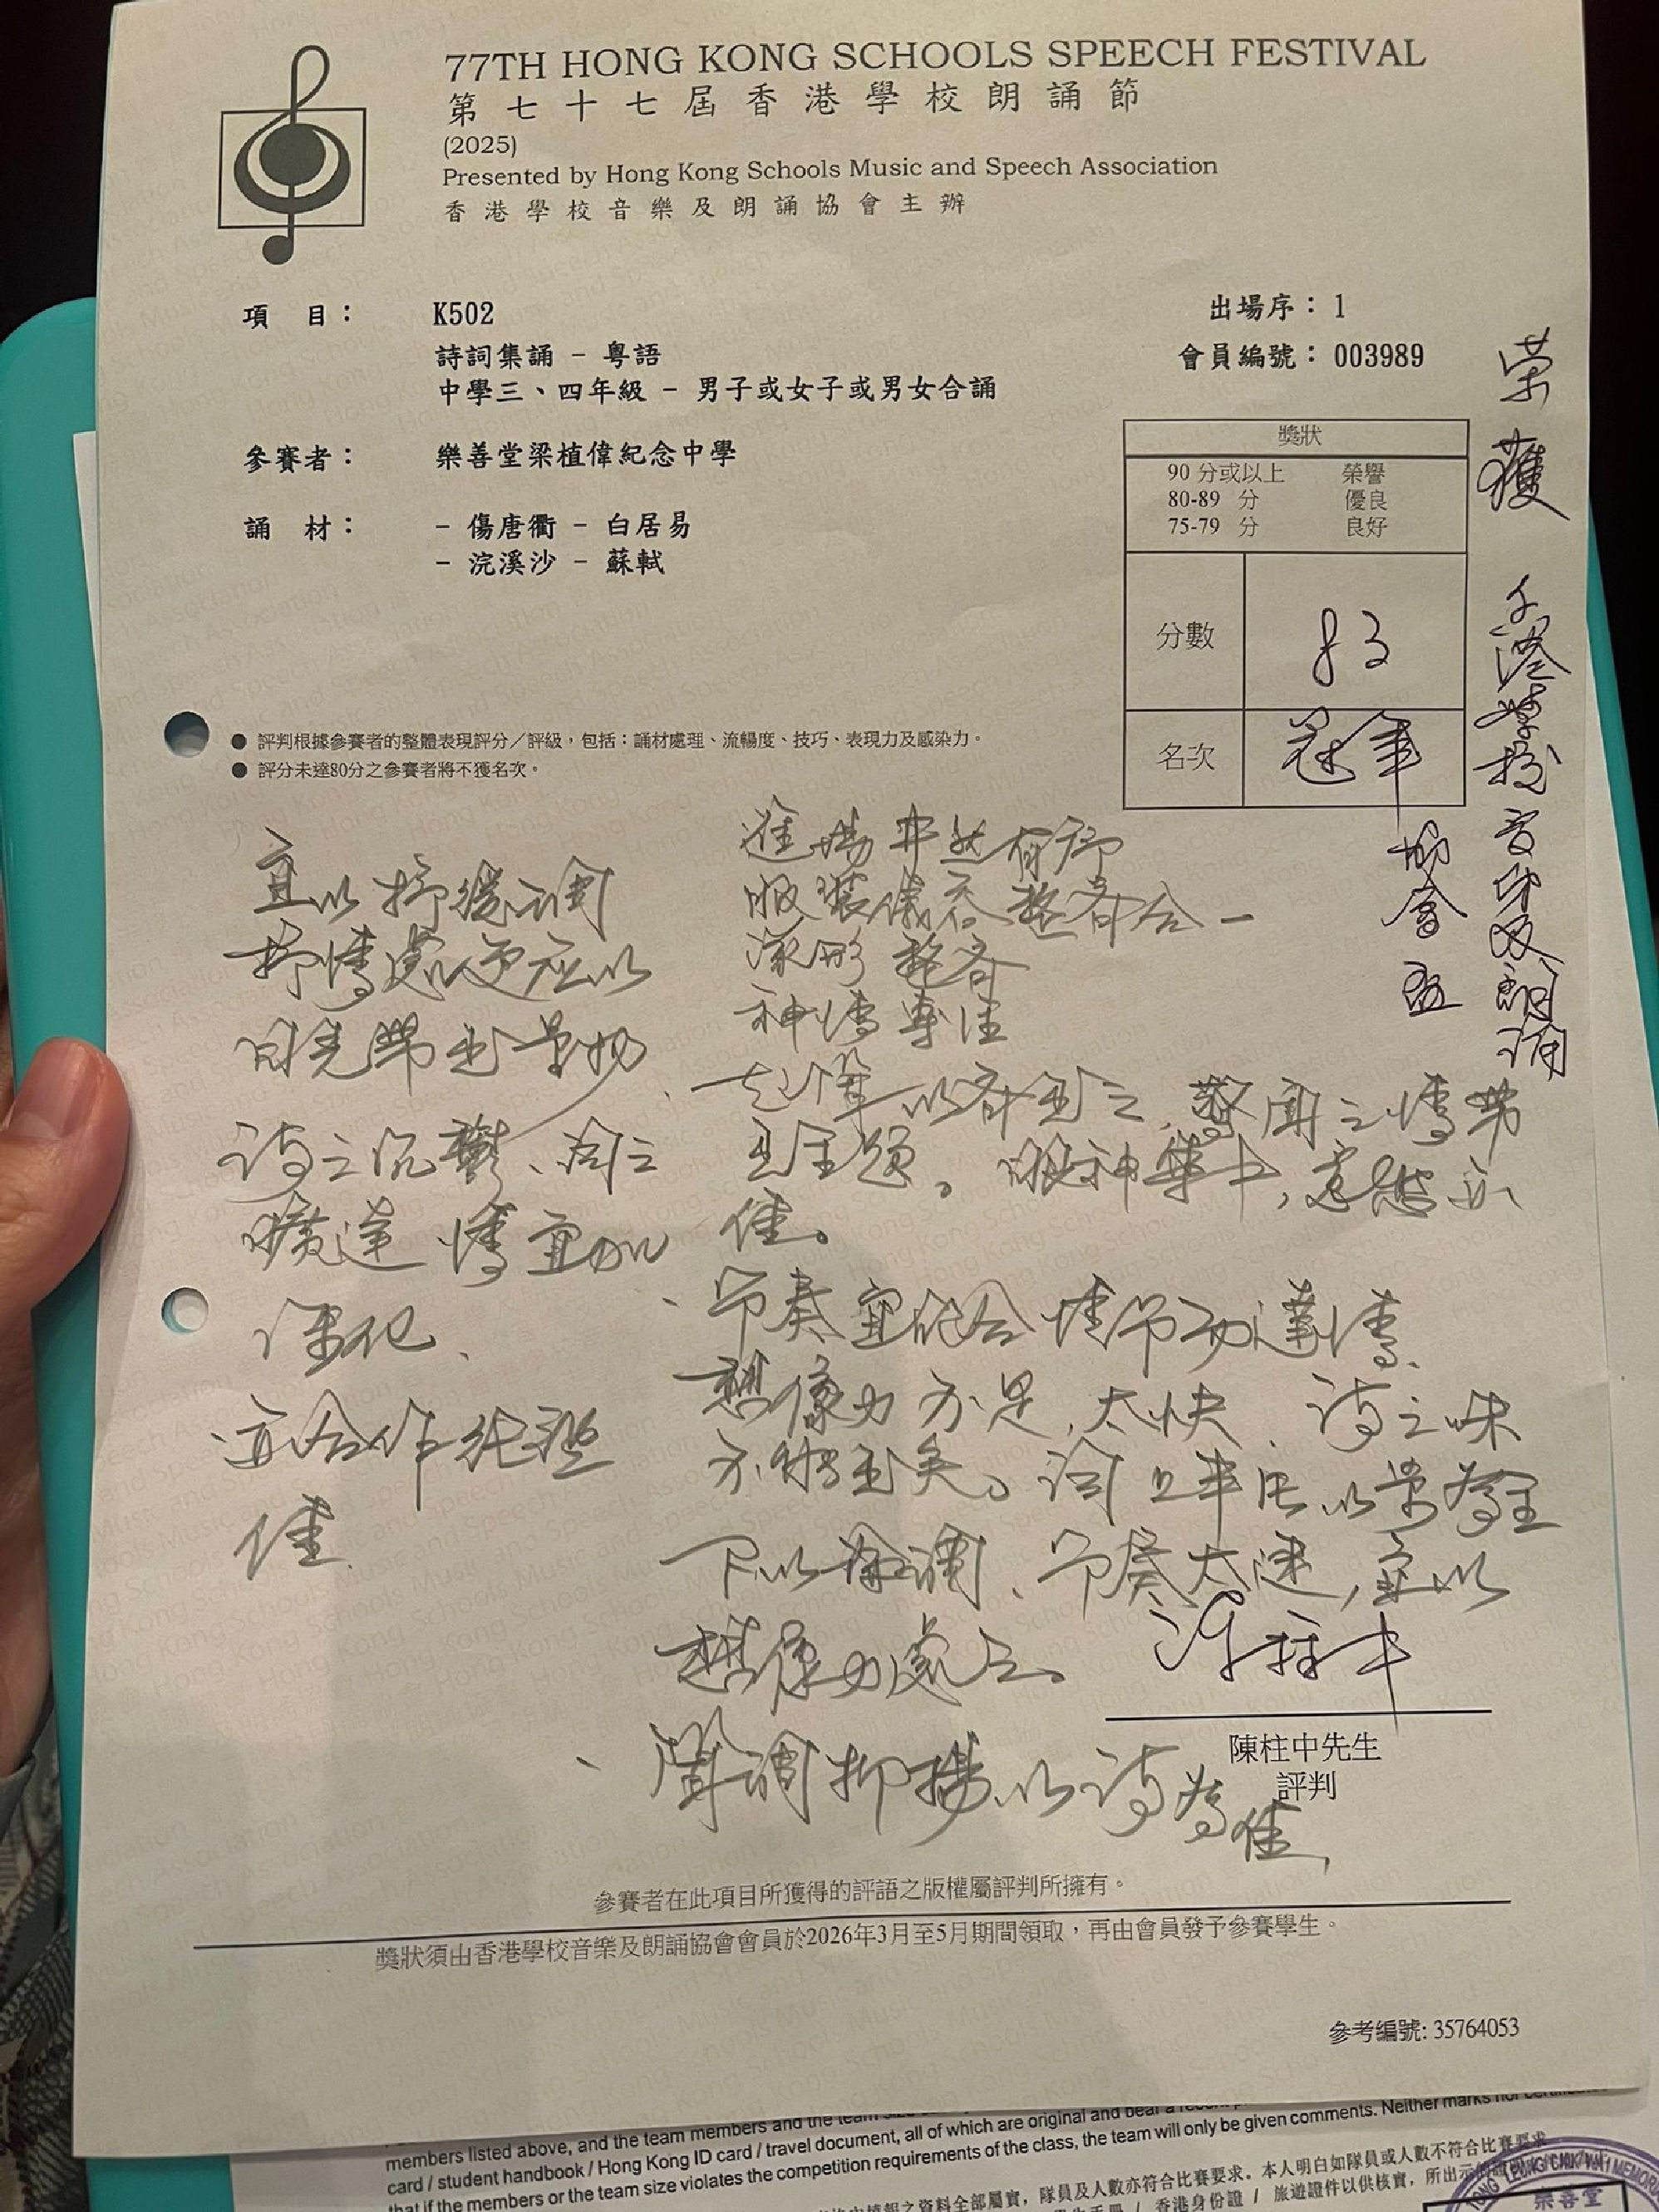 77TH HONG KONG SCHOOLS SPEECH FESTIVAL
第七十七屆香港學校朗誦節
(2025)
Presented by Hong Kong Schools Music and Speech Association
香港學校音樂及朗誦協會主辦
項 目： K502
詩詞集誦 - 粵語
中學三、四年級 - 男子或女子或男女合誦
出場序： 1
會員編號： 003989
參賽者： 樂善堂梁植偉紀念中學
誦 材： - 傷唐衢 - 白居易
- 浣溪沙 - 蘇軾
獎狀
90 分或以上 榮譽
80-89 分 優良
75-79 分 良好
分數 83
名次 冠軍
榮獲 香港學校音樂及朗誦
協會盃
● 評判根據參賽者的整體表現評分／評級，包括：誦材處理、流暢度、技巧、表現力及感染力。
● 評分未達80分之參賽者將不獲名次。
進場井然有序
服裝儀容整齊合一
隊形整齊
神情專注
之，驚聞之情帶
出主題。眼神集中，意態亦
佳。
、節奏宜配合情節而達情、
想像力不足，太快，詩之味
不能出矣。詞上半片以景為主
下以 調、節奏太速，宜以
想像力處之。
、聲調抑揚以詩為佳，
宜以抒緩調
抒情處更應以
目光帶出景物
詩之沉鬱、詞之
曠達情宜加
深化、
、宜合作
佳
陳柱中先生
評判
參賽者在此項目所獲得的評語之版權屬評判所擁有。
獎狀須由香港學校音樂及朗誦協會會員於2026年3月至5月期間領取，再由會員發予參賽學生。
參考編號: 35764053
members listed above, and the team members and the team size
card / student handbook / Hong Kong ID card / travel document, all of which are original and bear a
that if the members or the team size violates the competition requirements of the class, the team will only be given comments. Neither marks nor
資料全部屬實，隊員及人數亦符合比賽要求。本人明白如隊員或人數不符合比賽要求
香港身份證 / 旅遊證件以供核實，所出示
樂善堂